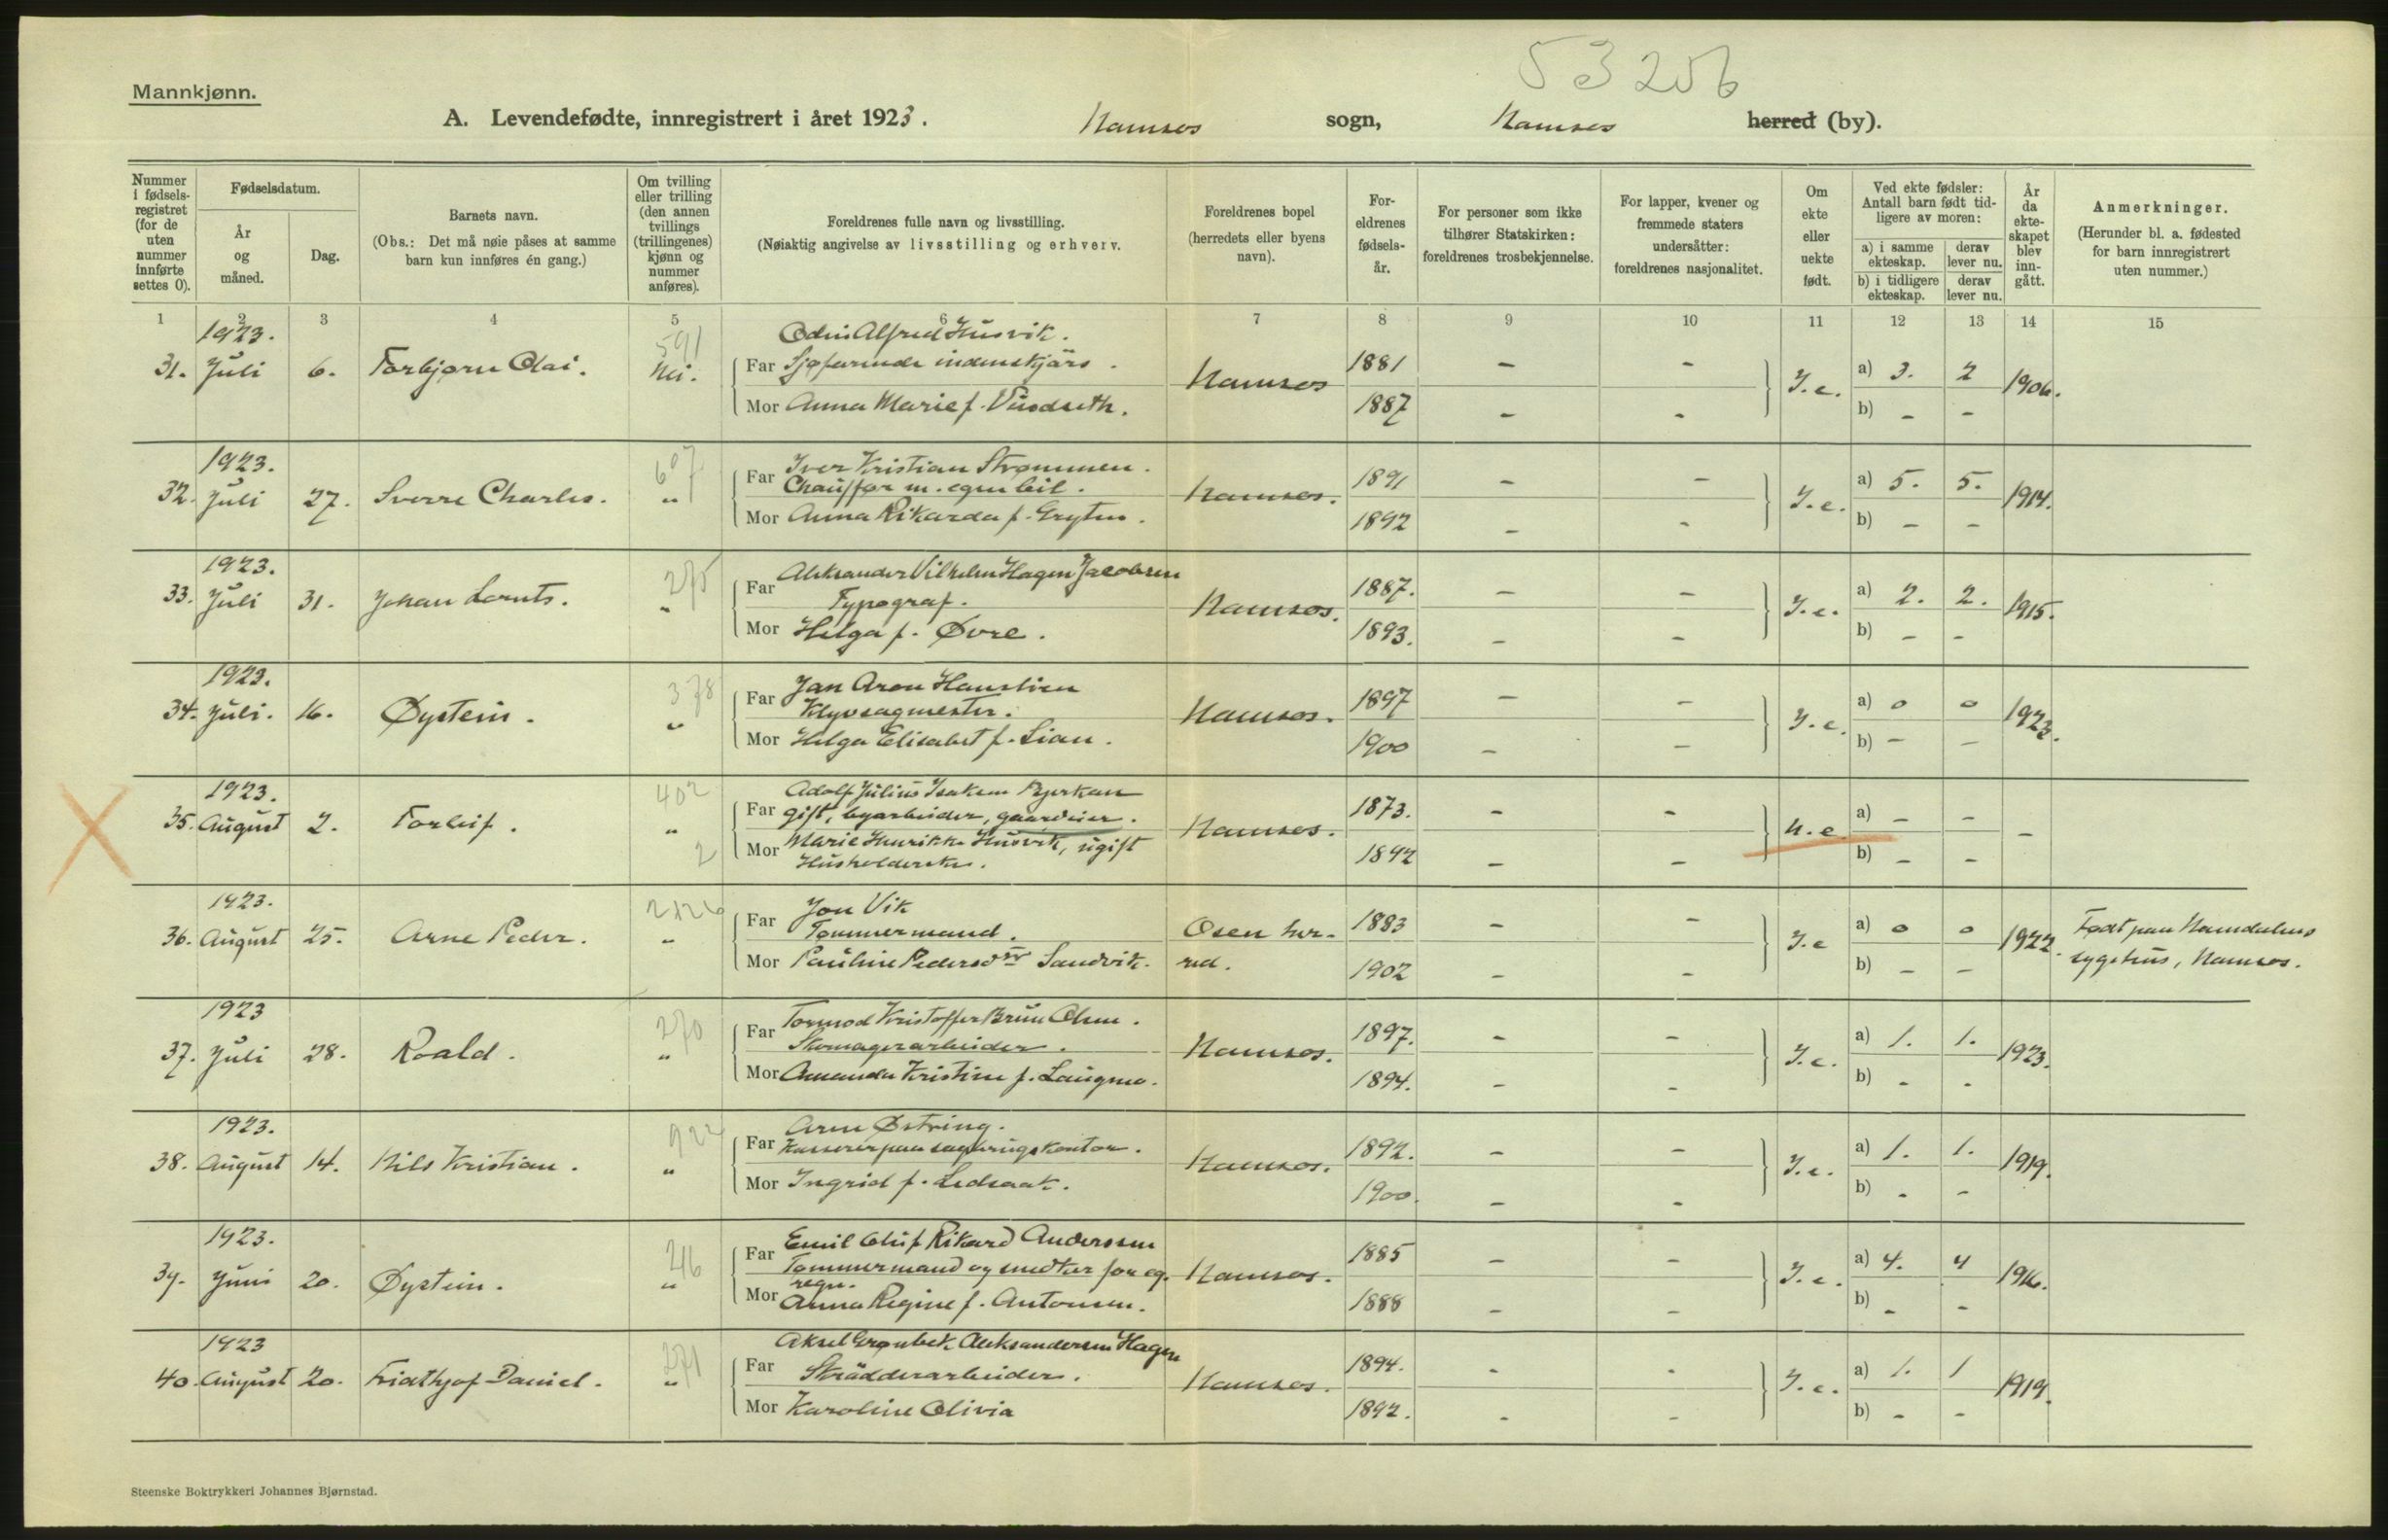 53256
Mannkjønn.
A. Levendefødte, innregistrert i året 1923. Namsos sogn, Namsos herred (by).
Nummer i fødselsregistret (for de uten nummer innførte settes 0).
Fødselsdatum.
År og måned.
Dag.
Barnets navn.
(Obs.: Det må nøie påses at samme barn kun innføres én gang.)
Om tvilling eller trilling (den annen tvillings (trillingenes) kjønn og nummer anføres).
Foreldrenes fulle navn og livsstilling.
(Nøiaktig angivelse av livsstilling og erhverv.
Foreldrenes bopel (herredets eller byens navn).
Foreldrenes fødselsår.
For personer som ikke tilhører Statskirken: foreldrenes trosbekjennelse.
For lapper, kvener og fremmede staters undersåtter: foreldrenes nasjonalitet.
Om ekte eller uekte født.
Ved ekte fødsler: Antall barn født tidligere av moren:
a) i samme ekteskap. derav lever nu.
b) i tidligere ekteskap. derav lever nu.
År da ekteskapet blev inngått.
Anmerkninger.
(Herunder bl. a. fødested for barn innregistrert uten nummer.)
1 2 3 4 5 6 7 8 9 10 11 12 13 14 15
1923. 591 Odin Alfred Husvik.
31. Juli 6. Torbjørn Olai. Nei. Far Sjøfarende indenskjärs. Namsos 1881 - - J.e. a) 3. 2 1906.
Mor Anna Marie f. Vindseth. 1887 - - b) - -
1923. 607 Iver Kristian Strømmen.
32. Juli 27. Sverre Charles. " Far Chauffør m. egen bil. Namsos. 1891 - - J.e. a) 5. 5. 1914.
Mor Anna Rikarda f. Gryten. 1892 - - b) - -
1923. 275 Aleksander Vilhelm Hagen Jacobsen
33. Juli 31. Johan Lornts. " Far Typograf. Namsos. 1887. - - J.e. a) 2. 2. 1915.
Mor Helga f. Øvre. 1893. - - b) - -
1923. 378 Jan Aron Haustien
34. Juli. 16. Øystein. " Far Klyvsagmester. Namsos. 1897 - - J.e. a) 0 0 1923.
Mor Helga Elisabet f. Lian. 1900 - - b) - -
1923. 402 Adolf Julius Isaksen Bjerkan
35. August 2. Torleif. " Far gift, byarbeider, gaardeier. Namsos. 1873. - - U.e. a) - - -
2 Mor Marie Henrikke Husvik, ugift 1892 - - b) - -
Husholderske.
1923. Jon Vik
36. August 25. Arne Peder. " Far Tømmermand. Osen her- 1883 - - J.e a) 0 0 1922. Født paa Namdalens
Mor Pauline Pedersdtr Sandvik. red. 1902 - - b) - - sygehus, Namsos.
1923 270 Tormod Kristoffer Bruu Olsen.
37. Juli 28. Roald. " Far Skomagerarbeider. Namsos. 1897. - - J.e. a) 1. 1. 1923.
Mor Amanda Kristine f. Laugmo. 1894. - - b) - -
1923. 922 Arne Østring.
38. August 14. Nils Kristian. " Far Kasserer paa sagbrugskontor. Namsos. 1892. - - J.e. a) 1. 1. 1919.
Mor Ingrid f. Ledsaak. 1900. - - b) - -
1923. 246 Emil Oluf Rikard Anderssen
39. Juni 20. Øystein. " Far Tømmermand og snedker for eg. Namsos. 1885 - - J.e. a) 4. 4 1916.
regn.
Mor Anna Regine f. Antonsen. 1888 - - b) - -
1923 271 Aksel Grønbek Aleksandersen Hagen
40. August 20. Fridthjof Daniel. " Far Skrädderarbeider. Namsos. 1894. - - J.e. a) 1. 1 1919.
Mor Karoline Olivia 1892. - - b) - -
Steenske Boktrykkeri Johannes Bjørnstad.